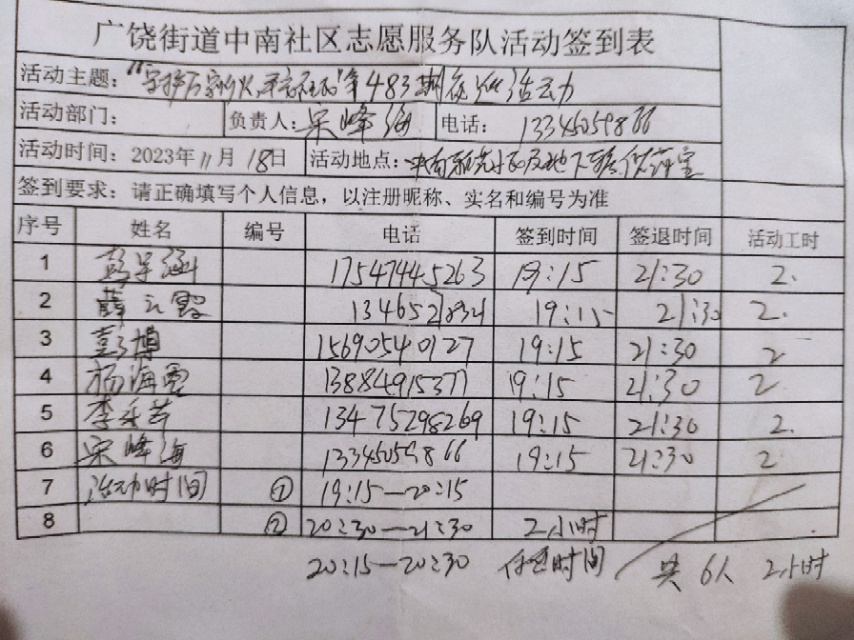 广饶街道中南社区志愿服务队活动签到表
活动主题: 第483期
活动部门: 负责人: 宋峰海 电话: 13345059866
活动时间: 2023年11月18日 活动地点: 中南
签到要求: 请正确填写个人信息，以注册昵称、实名和编号为准
序号 姓名 编号 电话 签到时间 签退时间 活动工时
1 17547445263 19:15 21:30 2.
2 薛云霞 19:15 21:30 2.
3 彭博 15690540127 19:15 21:30 2
4 杨海霞 13884915377 19:15 21:30 2
5 13475298269 19:15 21:30 2.
6 宋峰海 13345059866 19:15 21:30 2
7 活动时间 ① 19:15—20:15
8 ② 20:30—21:30 2小时
20:15—20:30 时间 共6人 2小时